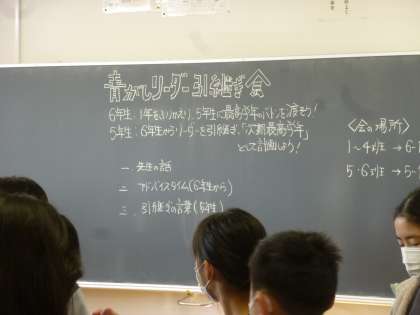 青がしリーダー引継ぎ会
6年生：1年をふりかえり、5年生に最高学年のバトンを渡そう!
5年生：6年生からリーダーを引継ぎ、「次期最高学年」
として計画しよう!
一 先生の話
二 アドバイスタイム(6年生から)
三 引継ぎの言葉(5年生)
〈会の場所〉
1〜4班→6-
5・6班→5-